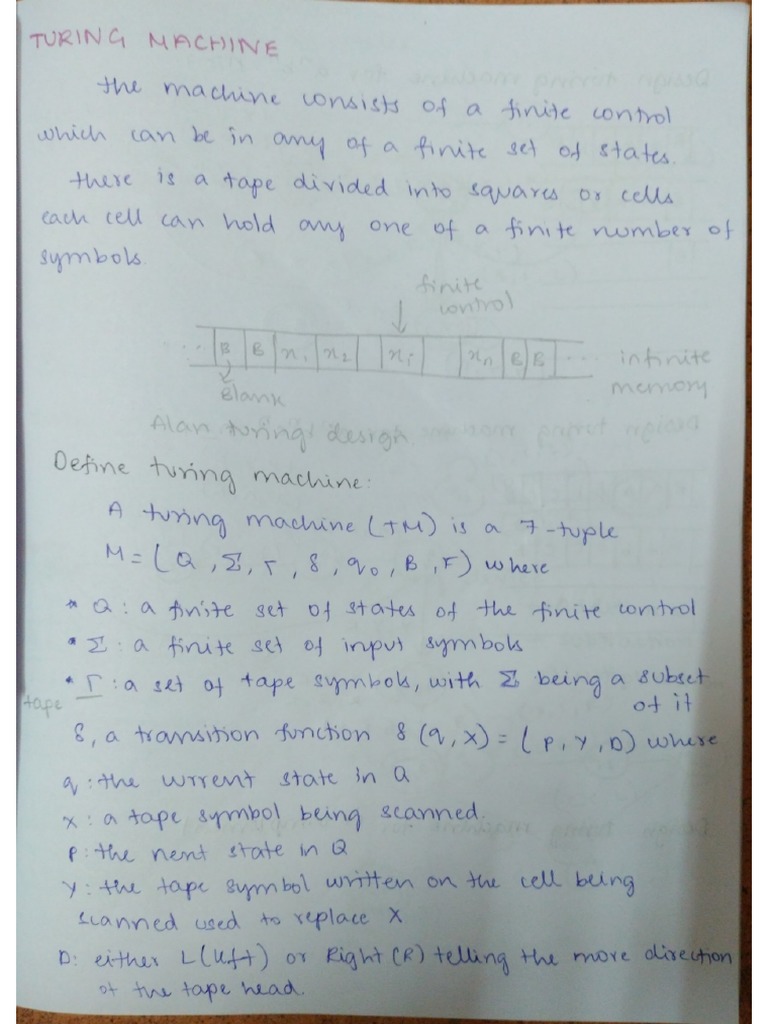 TURING MACHINE
the machine consists of a finite control
which can be in any of a finite set of states.
there is a tape divided into squares or cells
each cell can hold any one of a finite number of
symbols.
finite
control
.. B B x1 x2 xi xn B B ... infinite
memory
Blank
Alan turing design.
Define turing machine:
A turing machine (TM) is a 7-tuple
M = (Q, Σ, Γ, δ, q0, B, F) where
* Q : a finite set of states of the finite control
* Σ : a finite set of input symbols
* Γ : a set of tape symbols, with Σ being a subset
tape of it
δ, a transition function δ (q, x) = (P, Y, D) where
q : the current state in Q
x : a tape symbol being scanned.
P : the next state in Q
Y : the tape symbol written on the cell being
scanned used to replace X
D : either L (left) or Right (R) telling the move direction
of the tape head.